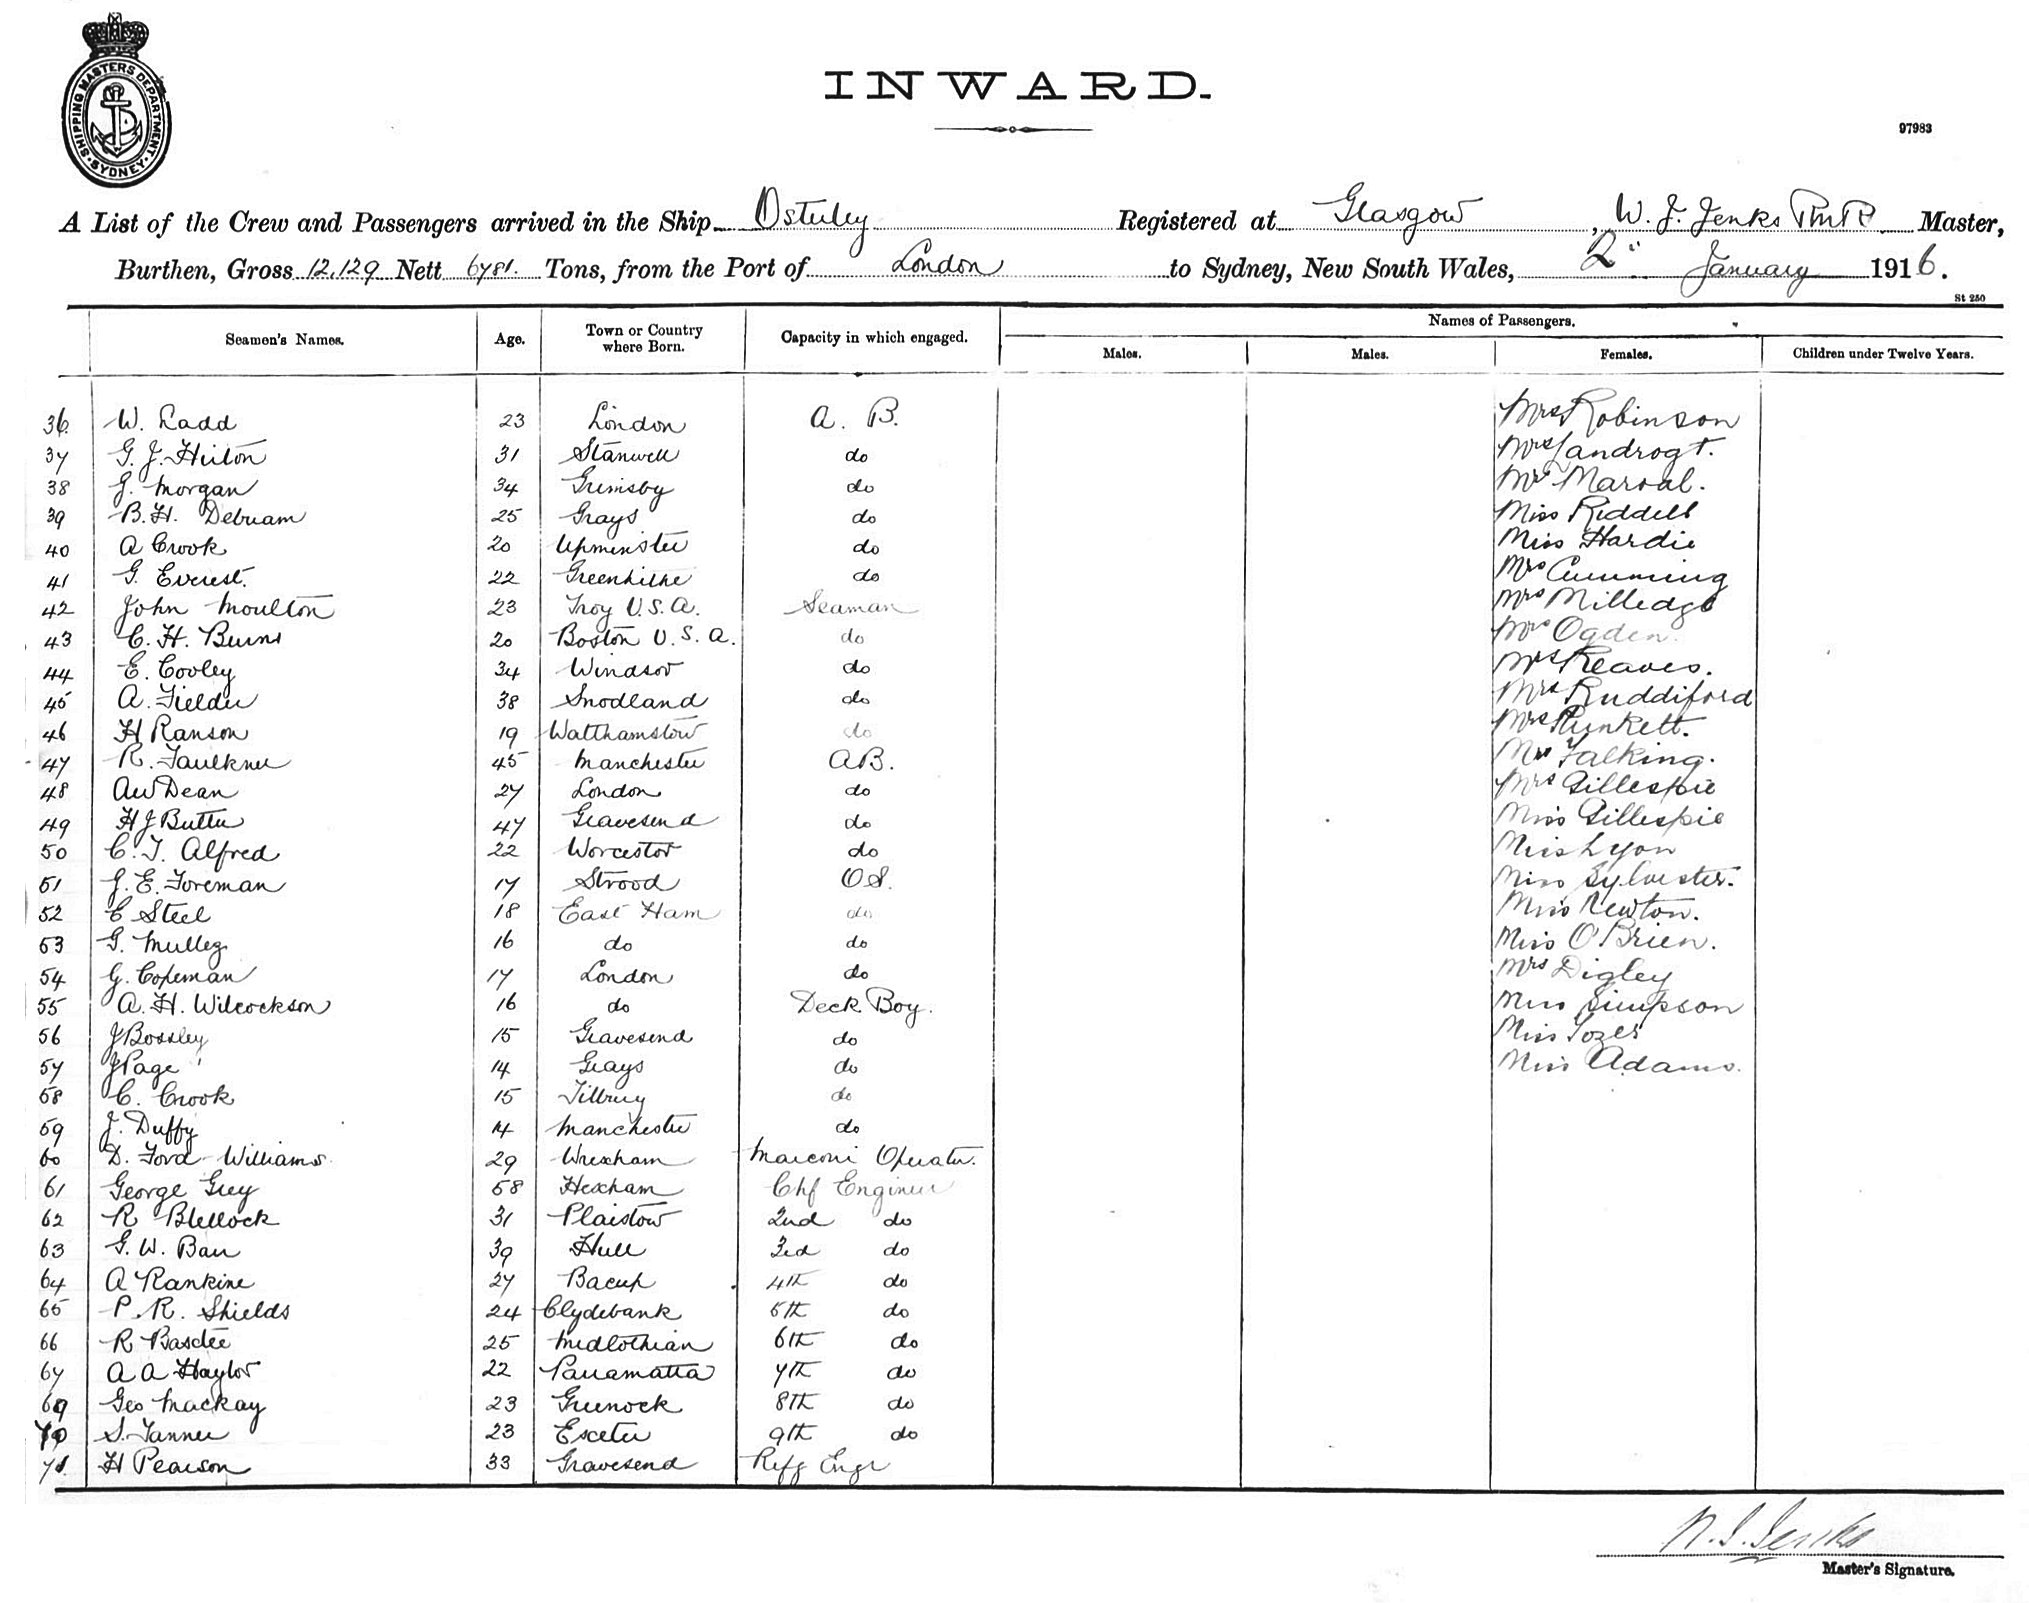 SHIPPING MASTERS DEPARTMENT
SYDNEY
INWARD.
97983
A List of the Crew and Passengers arrived in the Ship Osterley Registered at Glasgow, W. J. Jenks RNR Master,
Burthen, Gross 12,129 Nett 6781. Tons, from the Port of London to Sydney, New South Wales, 2" January 1916.
St 250
Seamen's Names. Age. Town or Country where Born. Capacity in which engaged. Names of Passengers.
Males. Males. Females. Children under Twelve Years.
36. W. Ladd 23 London A. B. Mrs Robinson
37 G. J. Hilton 31 Stanwell do Mrs Landrogt.
38 J. Morgan 34 Grimsby do
39 B. H. Debnam 25 Grays do Miss Riddell
40 A Crook 20 Upminster do Miss Hardie
41 G. Everest. 22 Greenhithe do Mrs Cumming
42 John Moulton 23 Troy U.S.A. Seaman Mrs Milledge
43 C. H. Burns 20 Boston U.S.A. do Mrs Ogden.
44 E. Cooley 34 Windsor do Mrs Reaves.
45 A. Fielder 38 Snodland do Mrs Ruddiford
46 H Ranson 19 Walthamstow do Mrs Plunkett.
47 R. Faulkner 45 Manchester A.B. Mrs Falking.
48 AW Dean 27 London do Mrs Gillespie
49 H J Butler 47 Gravesend do Miss Gillespie
50 C. T. Alfred 22 Worcester do Miss Lyon
51 J. E. Foreman 17 Strood O.S. Miss Sylvester.
52 C Steel 18 East Ham do Miss Newton.
53 G. Mulley 16 do do Miss O'Brien.
54 G. Copeman 17 London do Mrs Digley
55 A. H. Wilcockson 16 do Deck Boy. Miss Simpson
56 J Bossley 15 Gravesend do Miss Tozer
57 J Page 14 Grays do Miss Adams.
58 C. Crook 15 Tilbury do
59 J. Duffy 14 Manchester do
60 D. Ford Williams. 29 Wrexham Marconi Operator.
61 George Grey 58 Hexham Chf Engineer
62 R Blellock 31 Plaistow 2nd do
63 G. W. Barr 39 Hull 3rd do
64 A Rankine 27 Bacup 4th do
65 P. R. Shields 24 Clydebank 5th do
66 R Bastee 25 Midlothian 6th do
67 A A Haylor 22 Parramatta 7th do
69 Geo Mackay 23 Greenock 8th do
70 S. Tanner 23 Exeter 9th do
71. H Pearson 33 Gravesend Refg Engr
W. J. Jenks
Master's Signature.